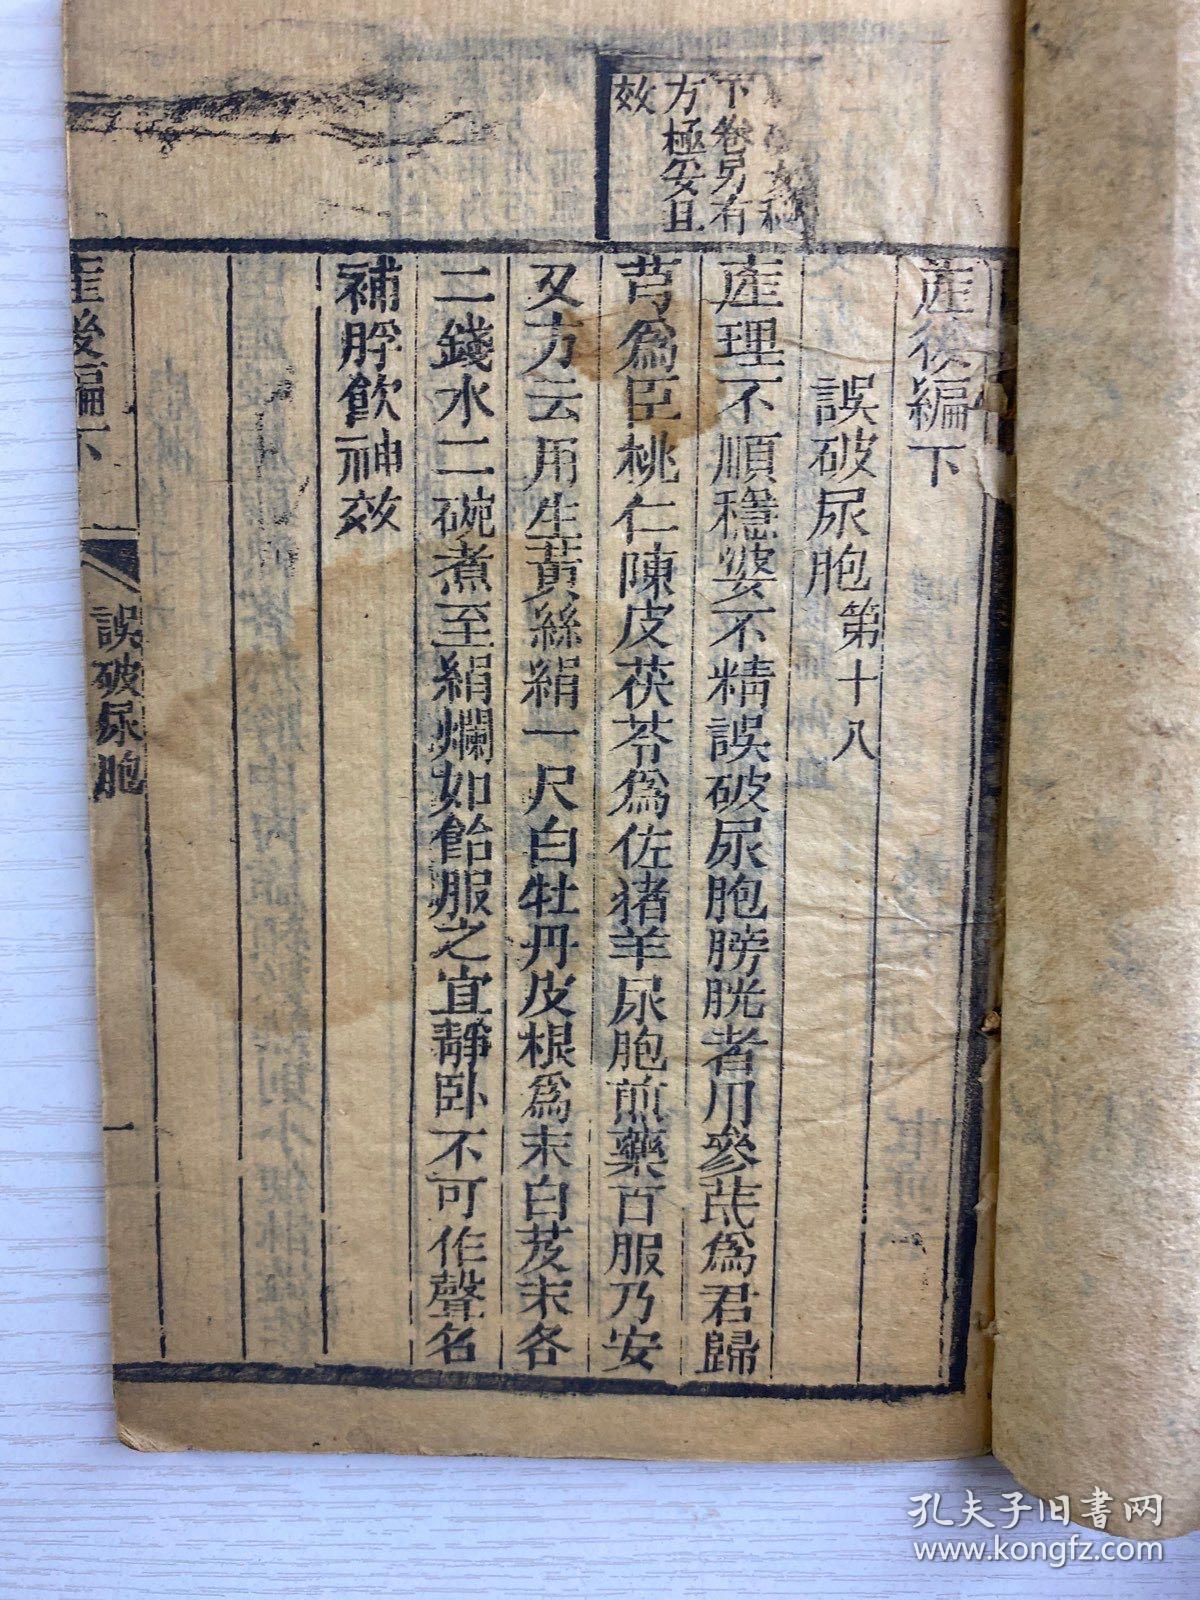 下卷另有
方極妥且
效
產後編下
誤破尿胞第十八
產理不順穩婆不精誤破尿胞膀胱者用參芪為君歸
芎為臣桃仁陳皮茯苓為佐猪羊尿胞煎藥百服乃安
又方云用生黃絲絹一尺白牡丹皮根為末白芨末各
二錢水二碗煮至絹爛如飴服之宜靜臥不可作聲名
補脬飲神效
產後編下
誤破尿胞
一
孔夫子旧書网
www.kongfz.com